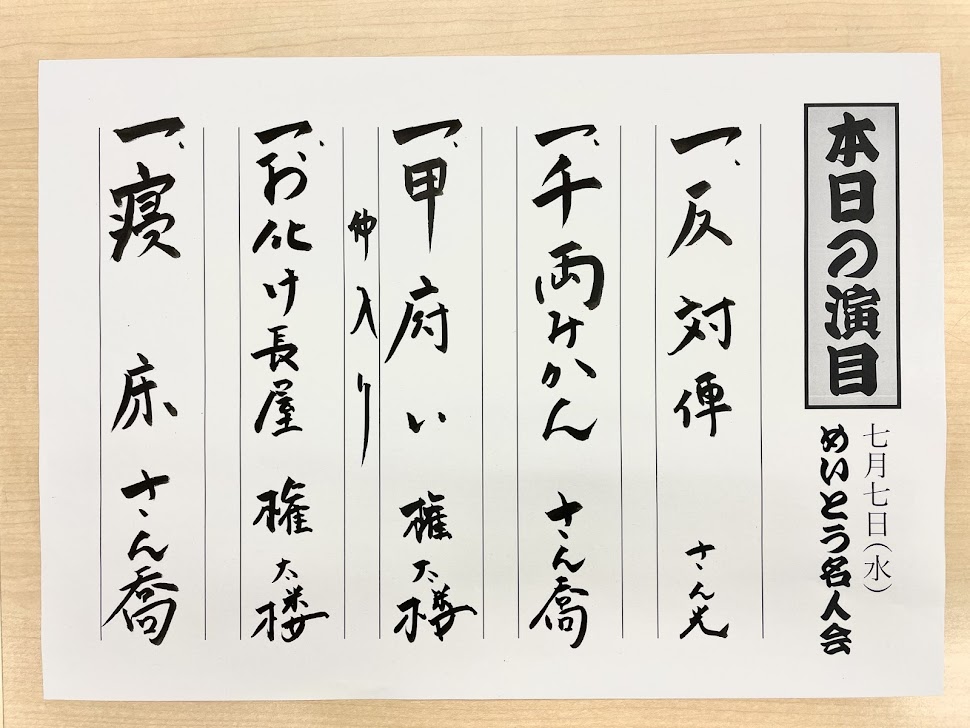 本日の演目
七月七日(水)
めいとう名人会
一、反対俥 さん光
一、千両みかん さん喬
一、甲府い 権太楼
仲入り
一、お化け長屋 権太楼
一、寝床 さん喬